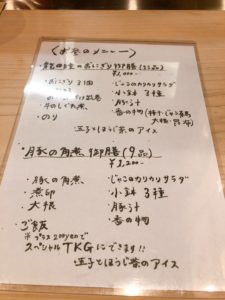 〈お昼のメニュー〉
のおにぎり御膳(9品)
¥1,000-
・おにぎり2個
・じゃこのカリカリサラダ
・小鉢3種
牛のしぐれ煮
・豚汁
・のり
・香の物
玉子とほうじ茶のアイス
・豚の角煮御膳(9品)
¥1,200-
・豚の角煮
・じゃこのカリカリサラダ
・煮卵
・小鉢3種
・大根
・豚汁
・ご飯
・香の物
※プラス200yenで
スペシャルTKGにできます!!
玉子とほうじ茶のアイス